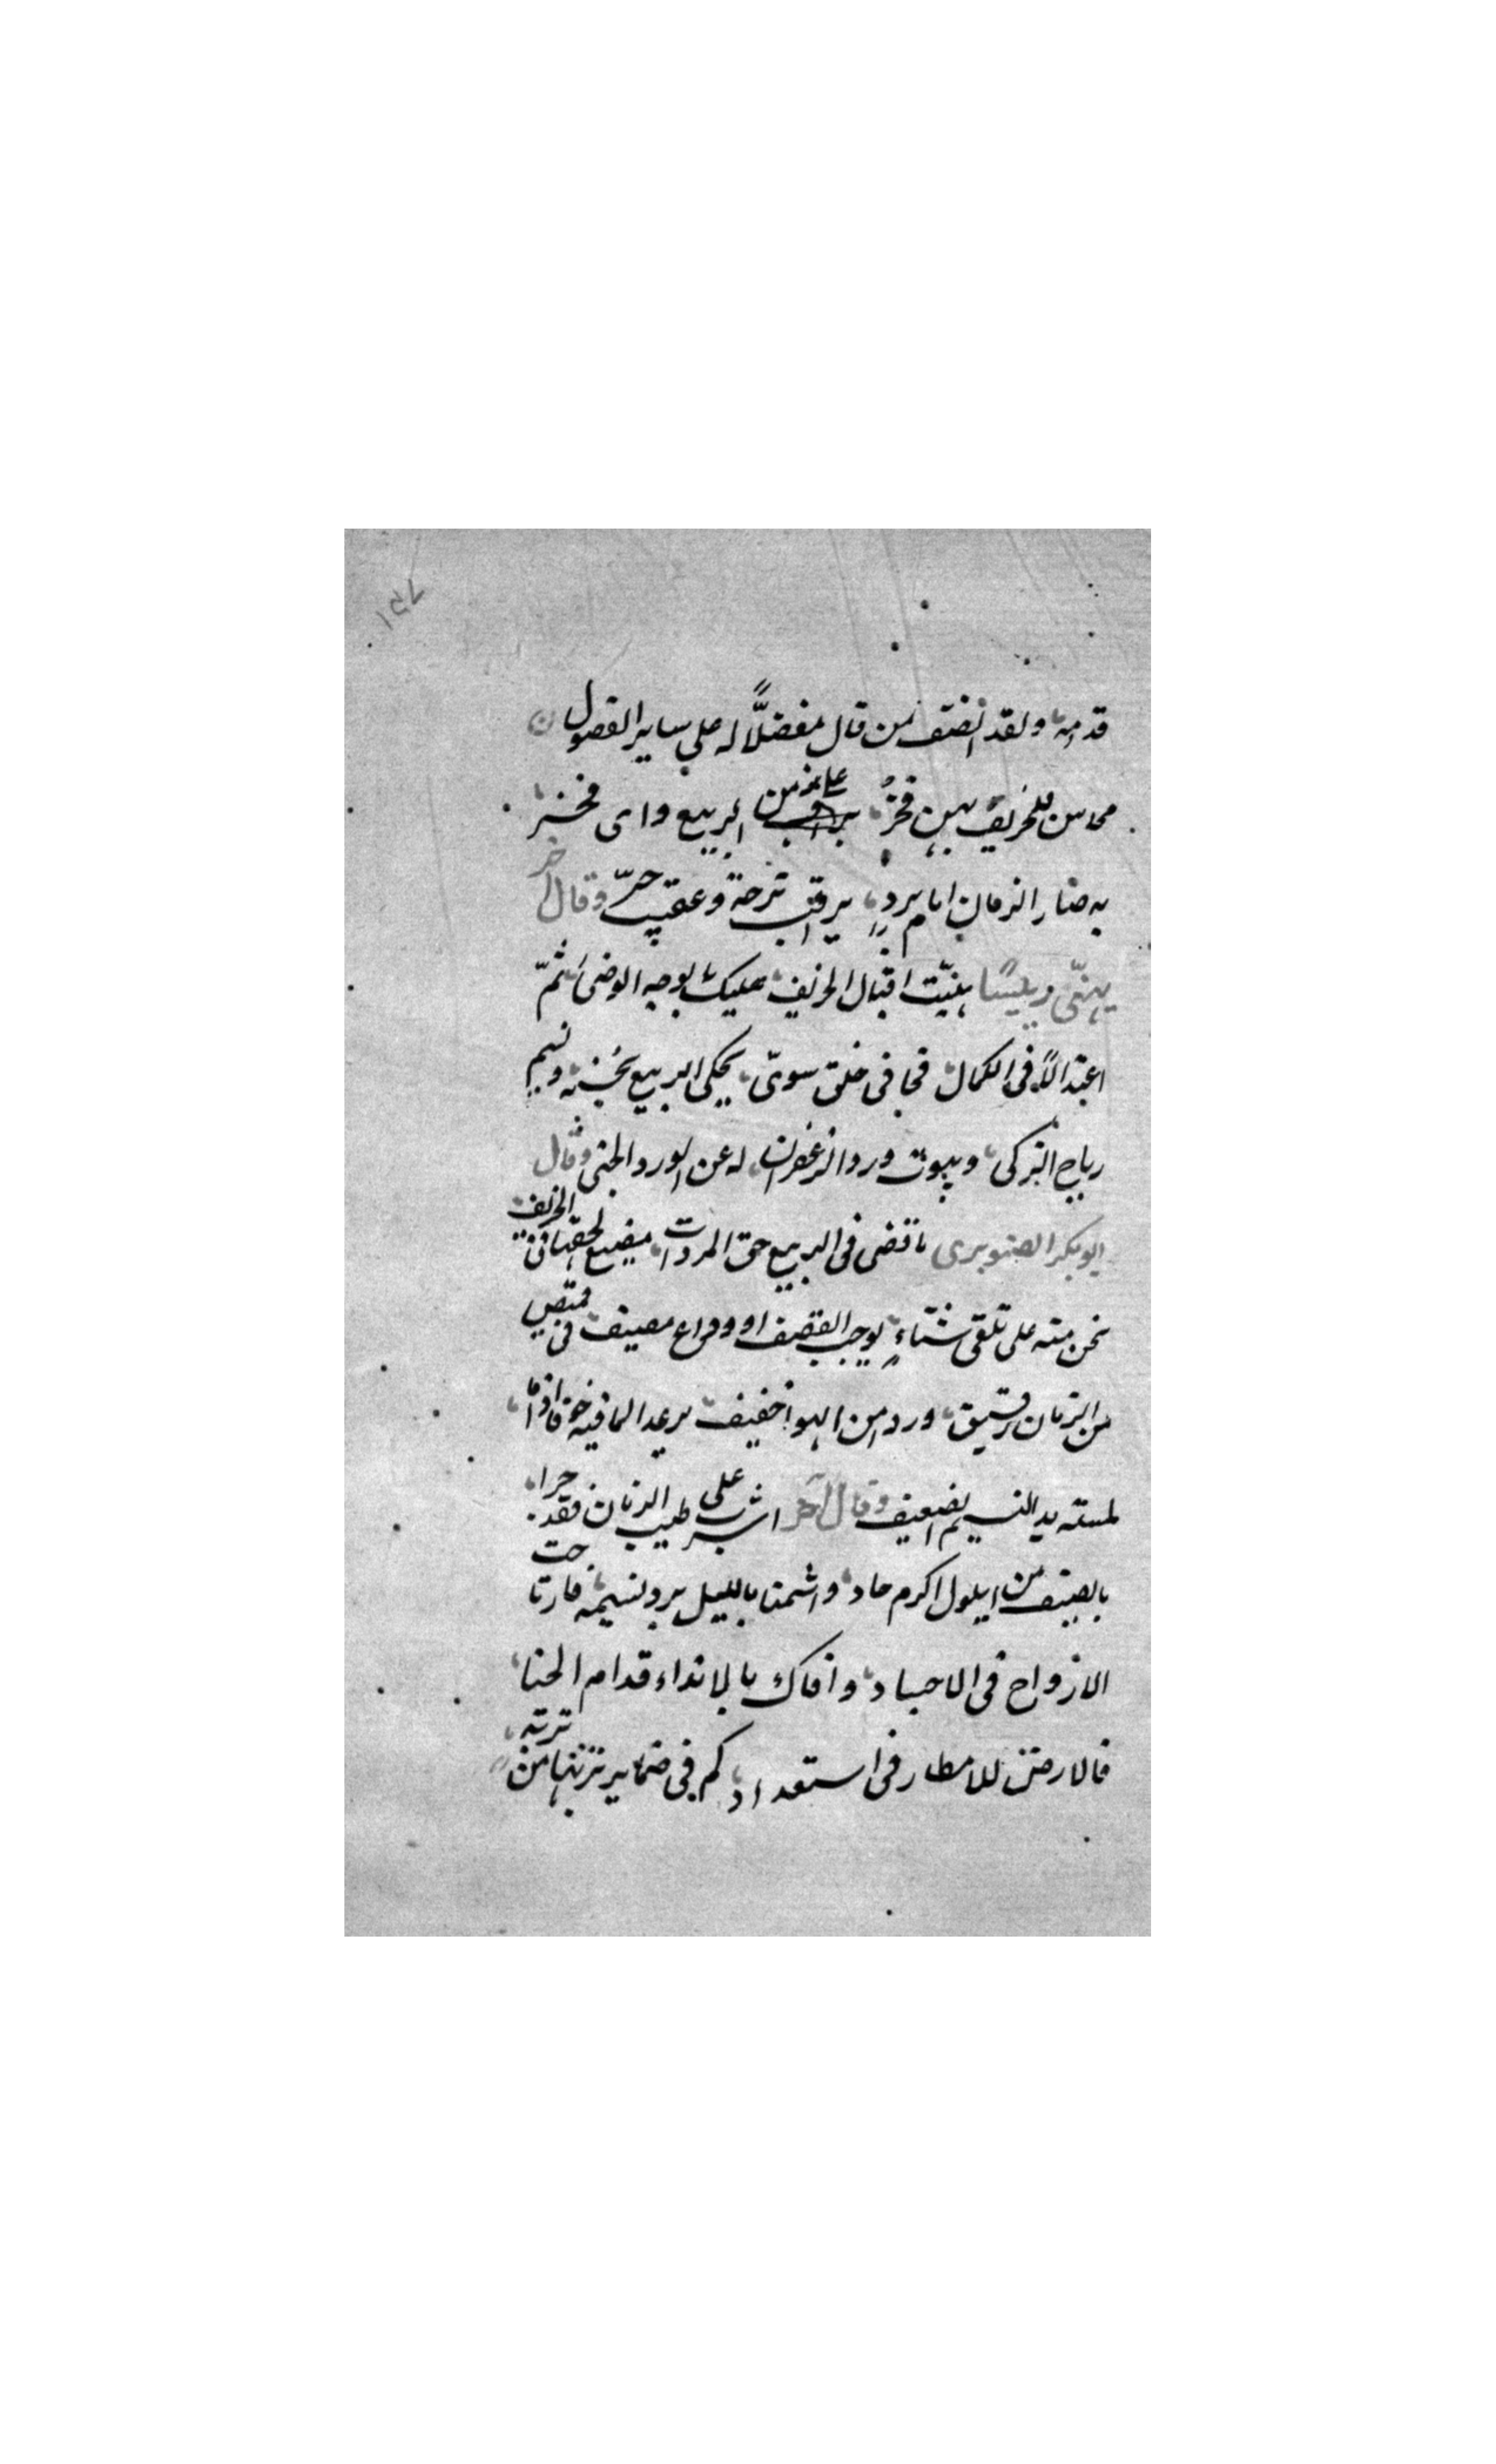 ١٥٧
قدامه ولقد انصف من قال مفضلًّا له على ساير الفصول
محاسن للخريف بهن فخرٌ على زمن الربيع واى فخر
به صار الزمان امام بردٍ يراقب نزحة وعقيب حرّ وقال آخر
يهنّى رييسًا هنيّت اقبال الخريف عليك بوجه الوضى ثمّ
اعتدالًا فى الكمال فجا فى خلق سوىّ يحكى الربيع بحسنه ونسيم
رياح التركى وينوب ورد الزعفران له عن الورد الجنى وقال
ابو بكر الصنوبرى ما قضى فى الربيع حق المسرات مضيع لحقها فى الخريف
نحن منه على تلقى شتاءٍ يوجب القصف او وداع مصيف فى قميص
من الزمان رقيق وردا من الهوا خفيف يرعد الما فيه خوفا اذا ما
لمسته يد النسيم الضعيف وقال آخر اشرب على طيب الزمان فقد حدا
بالصيف من ايلول اكرم حاد واشمنا بالليل برد نسيمه فارتاحت
الارواح فى الاجساد وافاك بالانداء قدام الحيا
فالارض للامطار فى استعداد كم فى ضماير تربتها من تربة